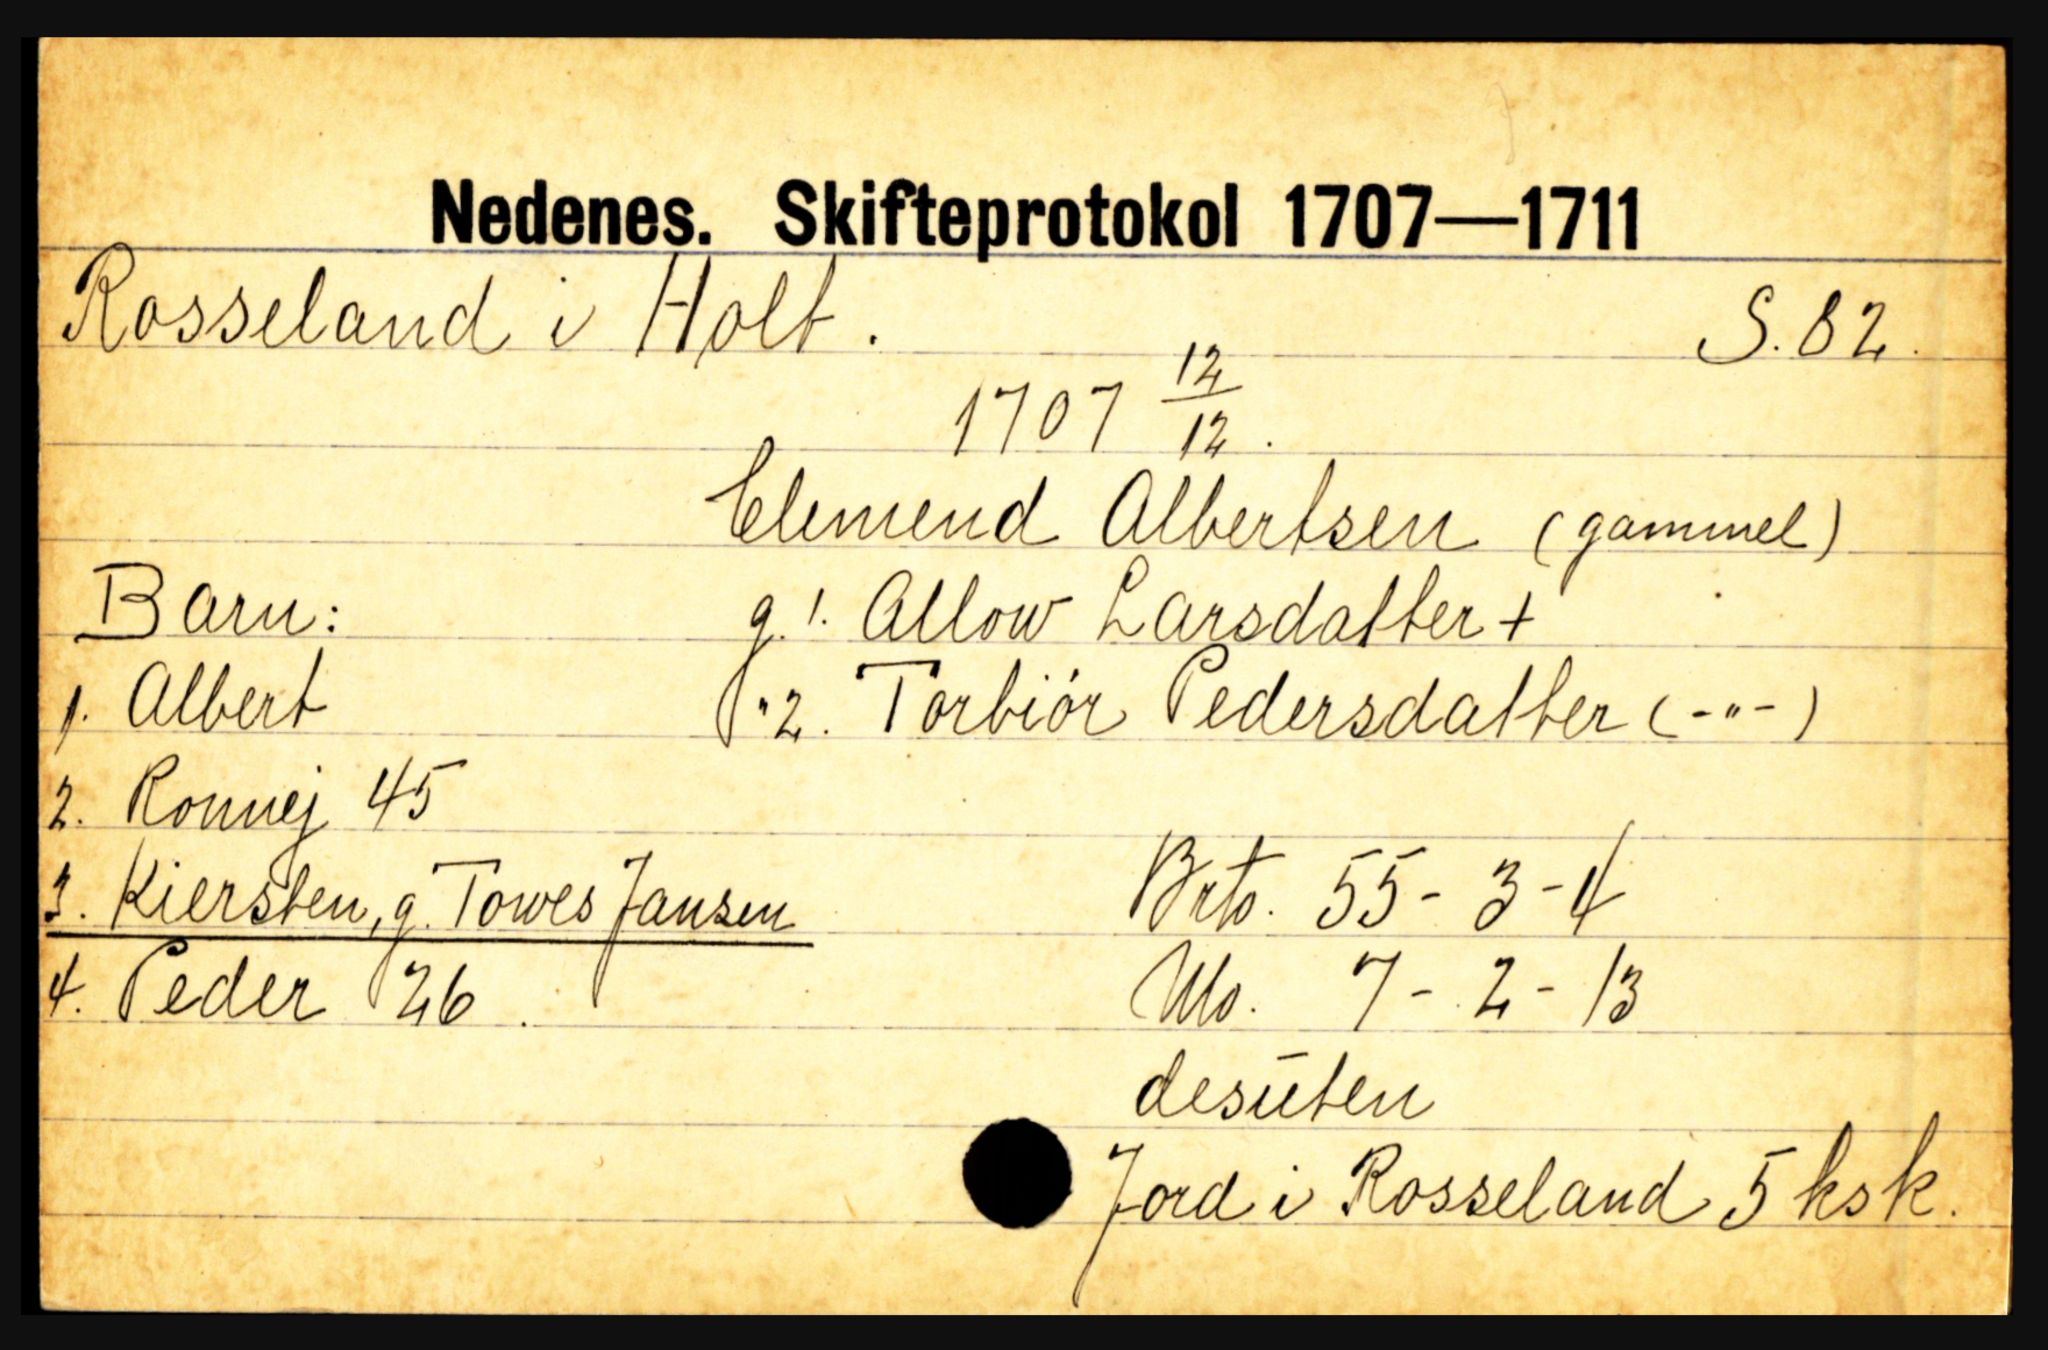 Nedenes. Skifteprotokol 1707—1711
Rosseland i Holt. S. 82.
1707 12/12.
Clemend Albertsen (gammel)
Barn: g. 1. Allow Larsdatter +
1. Albert " 2. Torbiör Pedersdatter (-"-)
2. Ronnej 45
3. Kiersten, g. Towes Jansen Brto. 55 - 3 - 4
4. Peder 26. Nto. 7 - 2 - 13
desuten
Jord i Rosseland 5 ksk.